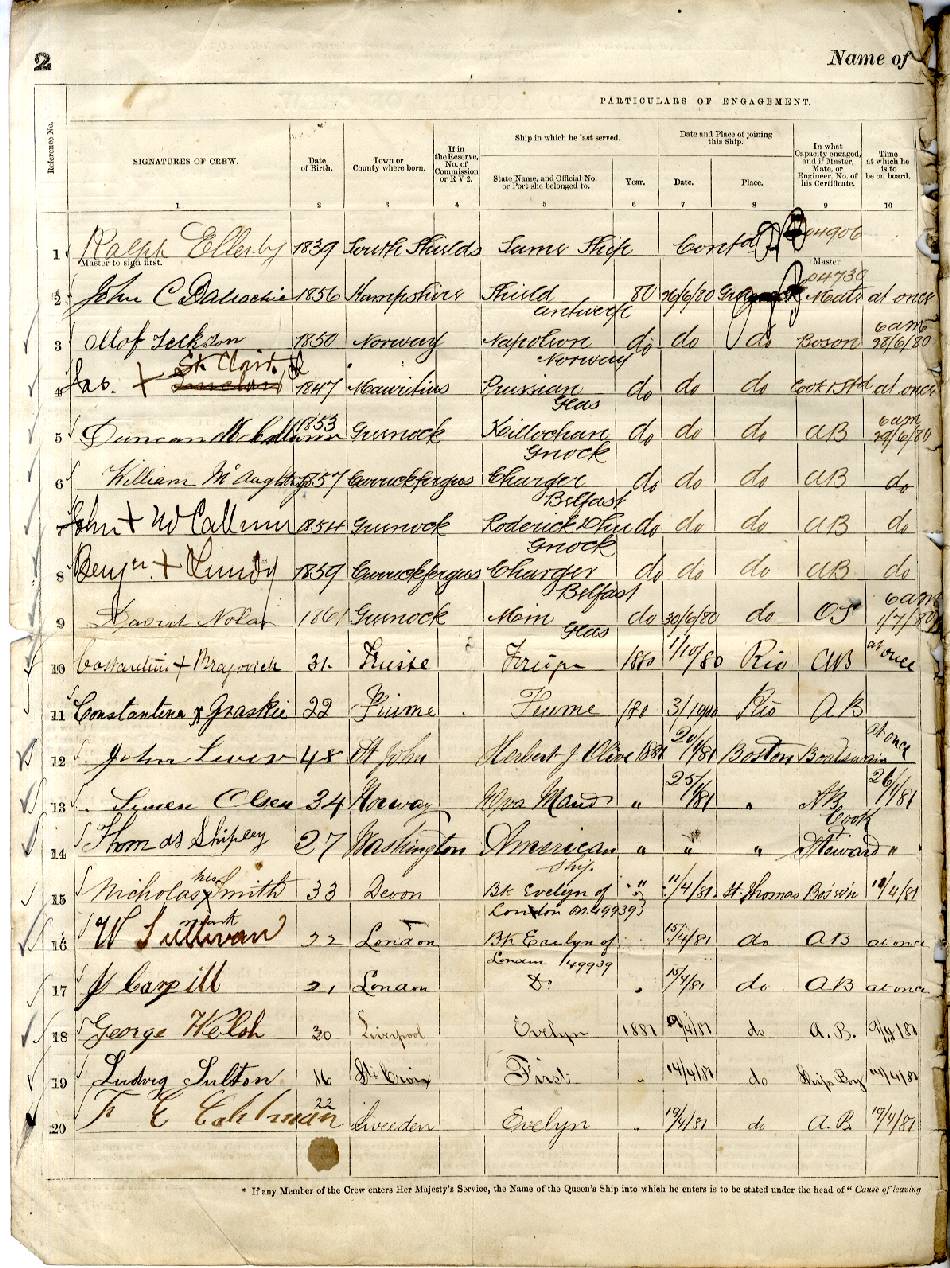 2
Name of
PARTICULARS OF ENGAGEMENT.
Reference No.
SIGNATURES OF CREW.
Date of Birth.
Town or County where born.
If in the Reserve, No. of Commission or R V 2.
Ship in which he last served.
State Name, and Official No. or Port she belonged to.
Year.
Date and Place of joining this Ship.
Date.
Place.
In what Capacity engaged, and if Master, Mate, or Engineer, No. of his Certificate.
Time at which he is to be on board.
1 2 3 4 5 6 7 8 9 10
1 Ralph Ellerby 1839 South Shields Same Ship Contd 04906
Master to sign first. Master
04730
2 John C 1856 Hampshire Shield 80 26/6/80 Mate at once
Antwerp 6am
3 1850 Norway Napoleon do do do Boson 28/6/80
St Clair Norway
4 Jas. + 1847 Mauritius Prussian do do do Cook & Std at once
Glas 6am
5 Duncan 1853 Gurnock Killochan do do do AB 29/6/80
Gnock
6 William 1857 Carrickfergus Charger do do do AB do
Belfast
7 John + McCallum 1854 Gurnock Roderick Dhu do do do AB do
Gnock
8 Benjn + Lundy 1859 Carrickfergus Charger do do do AB do
Belfast 6am
9 David Nolan 1861 Gurnock Main do 30/6/80 do OS 1/7/80
Glas
10 + 31 1880 1/10/80 Rio AB at once
11 Constantine x Graskie 22 Fiume Fiume 180 3/ Rio AB
12 John 48 St John Herbert J Olive 1881 20/1/81 Boston Boatswain at once
13 Olsen 34 Norway " 25/1/81 " AB 26/1/81
Cook
14 Thomas Shipley 27 Washington American " " " Steward "
Ship
15 Nicholas his x mark Smith 33 Devon Bk Evelyn of " 11/4/81 St Thomas Bos'n 12/4/81
London on 49939
16 W Sullivan 22 London Bk Evelyn of 15/4/81 do AB at once
London 49939
17 J Cargill 21 London Do 15/4/81 do AB at once
18 George Welsh 30 Liverpool Evelyn 1881 19/4/81 do A.B. 19/4/81
19 Ludvig Sulton 16 St Croix First 14/4/81 do Ships Boy 14/4/81
20 F C 22 Sweeden Evelyn 19/4/81 do A.B. 19/4/81
* If any Member of the Crew enters Her Majesty's Service, the Name of the Queen's Ship into which he enters is to be stated under the head of "Cause of leaving